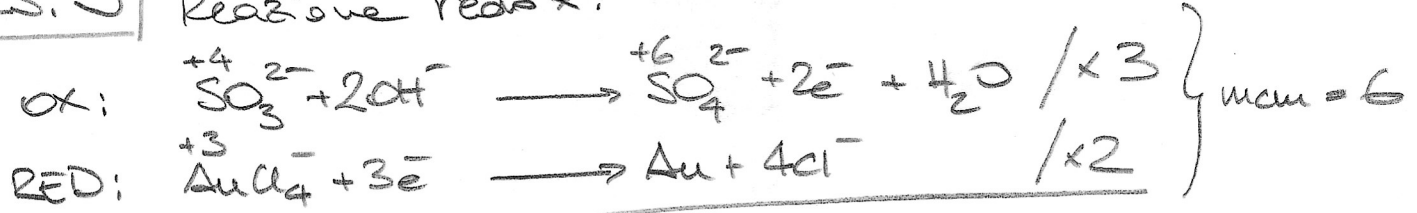 Reazione redox:
OX: +4 SO₃²⁻ + 2OH⁻ ⟶ +6 SO₄²⁻ + 2e⁻ + H₂O /×3 } mcm = 6
RED: +3 AuCl₄⁻ + 3e⁻ ⟶ Au + 4Cl⁻ /×2